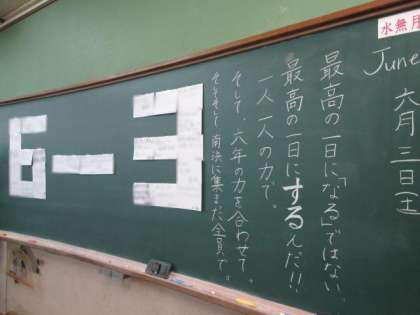 水無月
June
六月三日(土)
最高の一日に「なる」ではない、
最高の一日にするんだ!!
一人一人の力で。
そして、六年の力を合わせて。
そしてそして 南浜に集まる全員で。
6－3